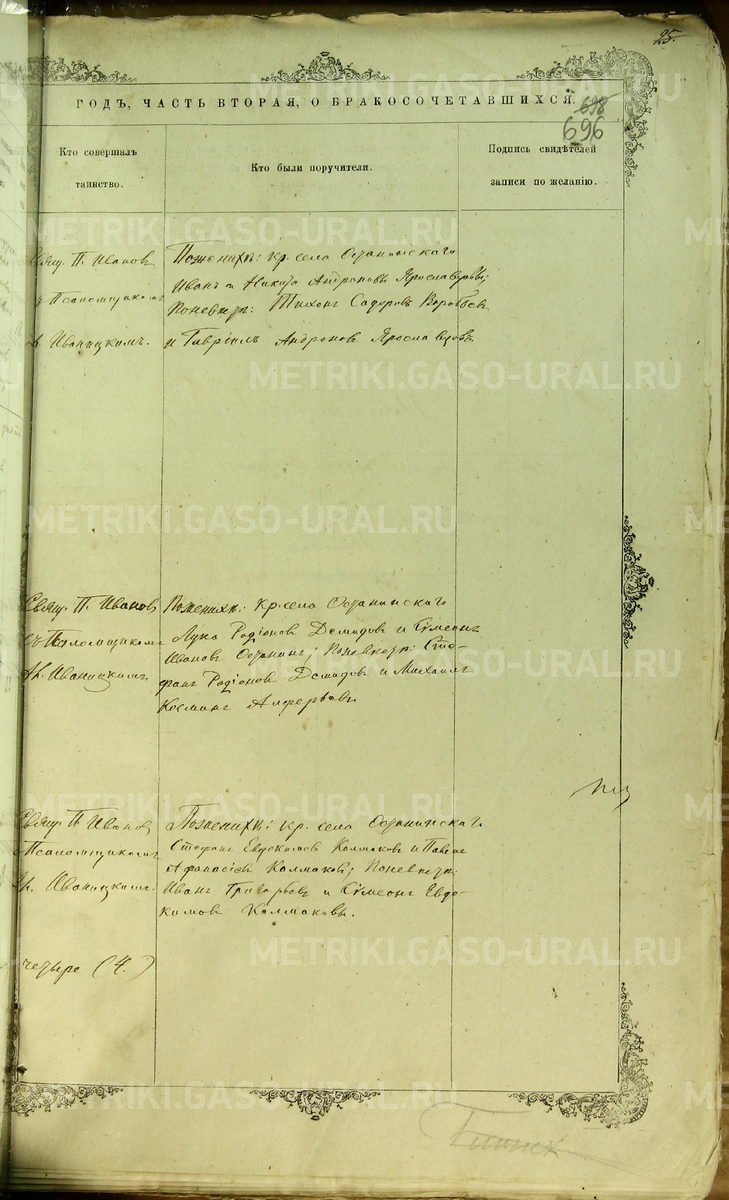 25.
ГОДЪ, ЧАСТЬ ВТОРАЯ, О БРАКОСОЧЕТАВШИХСЯ.
698
696
Кто совершалъ
таинство.
Кто были поручители.
Подпись свидѣтелей
записи по желанію.
Свящ. П. Иванов
Псаломщиком
Иваницкимъ.
По женихѣ: кр. села Останинскаго
Иванъ и Никита Андроновы Ярославцевы;
По невѣстѣ: Тихонъ Воробьев
и Гавріилъ Андронов Ярославцевъ.
Свящ. П. Иванов
съ Псаломщиком
Иваницкимъ.
По женихѣ: кр. села Останинскаго
Лука Родіонов Демидов и Сѵмеонъ
Иванов Останинъ; По невѣстѣ: Сте-
фанъ Родіонов Демидов и Михаилъ
Косминъ Алферьевъ
Свящ. П. Иванов
Псаломщиком
Иваницкимъ.
По женихѣ: кр. села Останинскаго
Стефанъ Евдокимов Колмаков и Павелъ
Афанасіев Колмаков; По невѣстѣ:
Иванъ Григорьев и Сѵмеонъ Евдо-
кимов Колмаковы.
четыре (4.)
METRIKI.GASO-URAL.RU